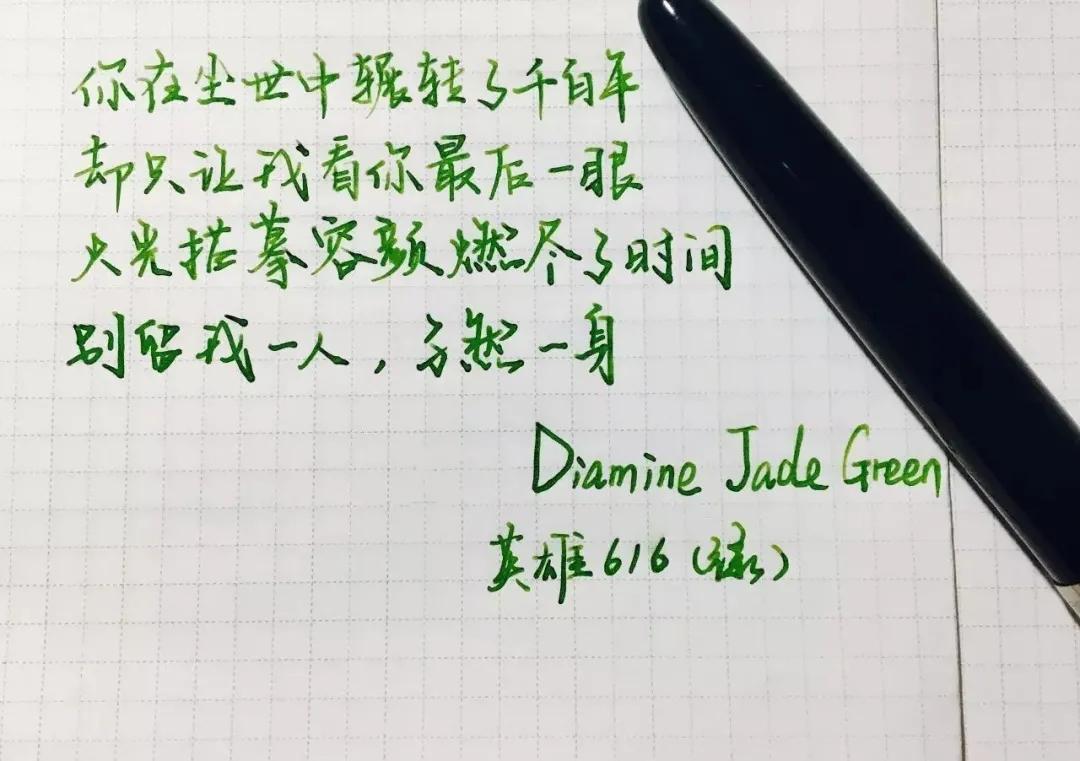 你在尘世中辗转了千百年
却只让我看你最后一眼
火光描摹容颜燃尽了时间
别留我一人，孑然一身
Diamine Jade Green
英雄616（绿）